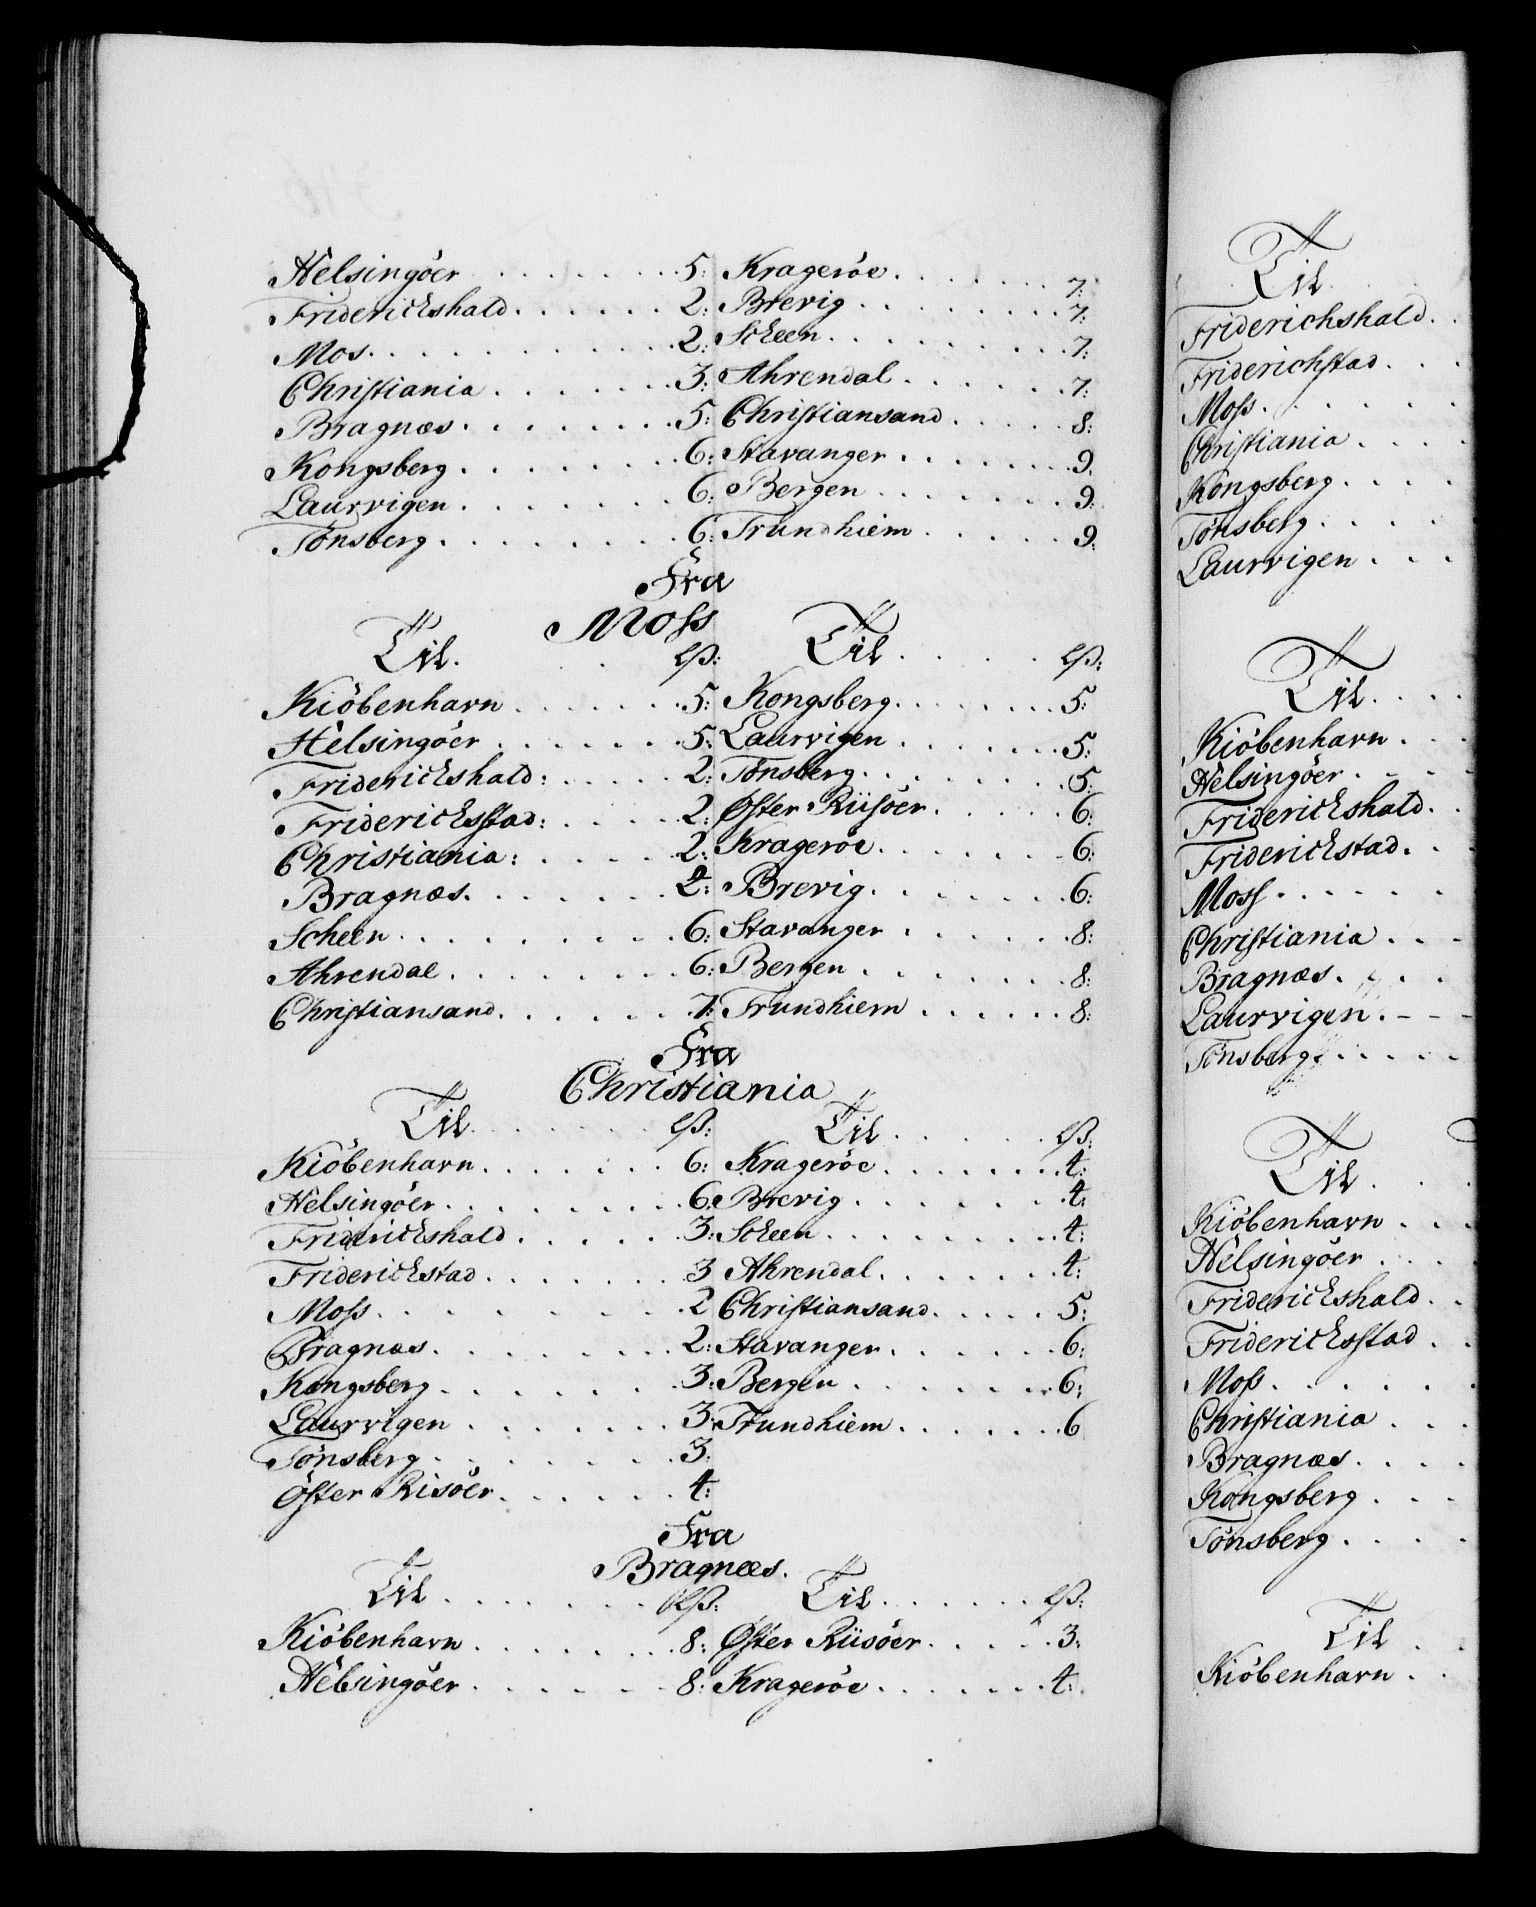 Helsingöer . . . . . . . 5: Krageröe . . . . . . . 7:
Friderichshald . . . . . . 2: Brevig . . . . . . . . 7:
Mos . . . . . . . . . . 2: Scheen . . . . . . . . 7:
Christiania . . . . . . . 3: Ahrendal . . . . . . . 7:
Bragnæs . . . . . . . . 5: Christiansand . . . . . 8:
Kongsberg . . . . . . . 6: Stavanger . . . . . . . 9.
Laurvigen . . . . . . . 6: Bergen . . . . . . . . 9:
Tönsberg . . . . . . . . 6: Trundhiem . . . . . . 9:
Fra
Moss
Til. . . lß: Til . . . . lß:
Kiöbenhavn . . . . . . 5: Kongsberg . . . . . . . 5:
Helsingöer . . . . . . . 5: Laurvigen . . . . . . . 5:
Friderichshald: . . . . . 2: Tönsberg . . . . . . . 5:
Friderichsstad: . . . . . 2: Öster Riisöer . . . . . 6:
Christiania: . . . . . . 2: Krageröe . . . . . . . 6:
Bragnæs. . . . . . . . 2: Brevig . . . . . . . . 6:
Scheen . . . . . . . . . 6: Stavanger . . . . . . 8:
Ahrendal . . . . . . . . 6: Bergen . . . . . . . . 8:
Christiansand . . . . . . 7: Trundhiem . . . . . . 8:
Fra
Christiania
Til . . . . . . . lß: Til . . . . . . lß:
Kiöbenhavn . . . . . . 6: Krageröe . . . . . . . 4:
Helsingöer . . . . . . . 6: Brevig . . . . . . . . 4:
Friderichshald . . . . . 3: Scheen . . . . . . . . 4:
Friderichstad . . . . . . 3 Ahrendal . . . . . . . 4:
Moss . . . . . . . . . 2 Christiansand . . . . . 5:
Bragnæs . . . . . . . . 2: Stavanger . . . . . . 6:
Kongsberg . . . . . . . 3: Bergen . . . . . . . . 6:
Laurvigen . . . . . . . 3: Trundhiem . . . . . . 6
Tönsberg . . . . . . . . 3:
Öster Risöer . . . . . . 4:
Fra
Bragnæs.
Til . . . . . . . lß: Til . . . . . . lß:
Kiöbenhavn . . . . . . 8: Öster Riisöer . . . . . 3:
Helsingöer . . . . . . . 8: Krageröe . . . . . . . 4:
Til
Friderichshald . .
Friderichstad . . .
Moss . . . . . .
Christiania . . . .
Kongsberg . . . .
Tönsberg . . . .
Laurvigen . . .
Til . . . .
Kiöbenhavn . . .
Helsingöer . . . .
Friderichshald . .
Friderichstad . .
Moss . . . . . .
Christiania . . .
Bragnæs . . . .
Laurvigen . - - -
Tönsberg . . . . .
Til . . .
Kiöbenhavn . . .
Helsingöer . . . .
Friderichshald . .
Friderichsstad . .
Moss . . . . . .
Christiania . . .
Bragnæs . . . .
Kongsberg . . .
Tönsberg . . . .
Til . .
Kiöbenhavn . .